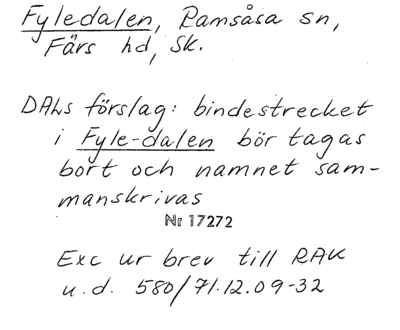 Fyledalen, Ramsåsa sn,
Färs hd, Sk.
DALs förslag: bindestrecket
i Fyle-dalen bör tagas
bort och namnet sam-
manskrivas
Nr 17272
Exc ur brev till RAK
u.d. 580/71.12.09-32